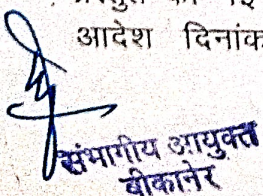 आदेश दिनांक
संभागीय आयुक्त
बीकानेर